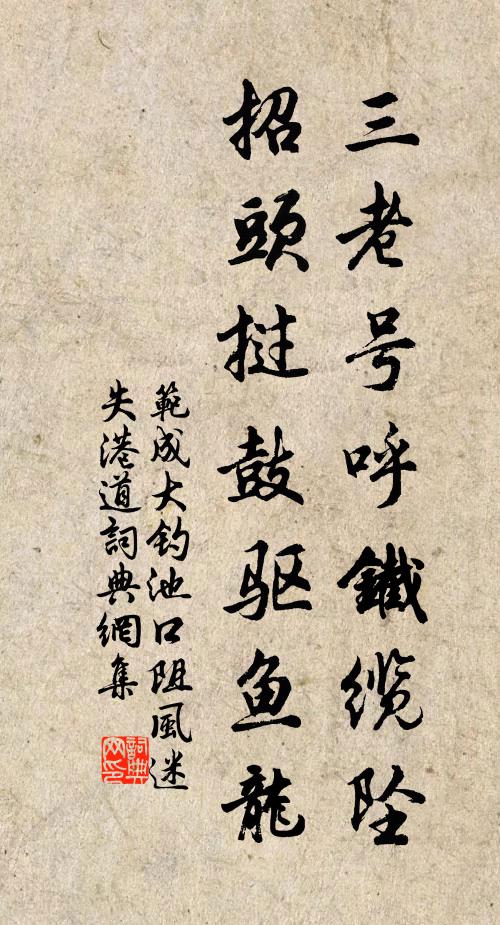 三老号呼鐵缆坠
招頭挞鼓驱鱼龍
範成大钓池口阻風迷
失港道詞典網集
詞典網印